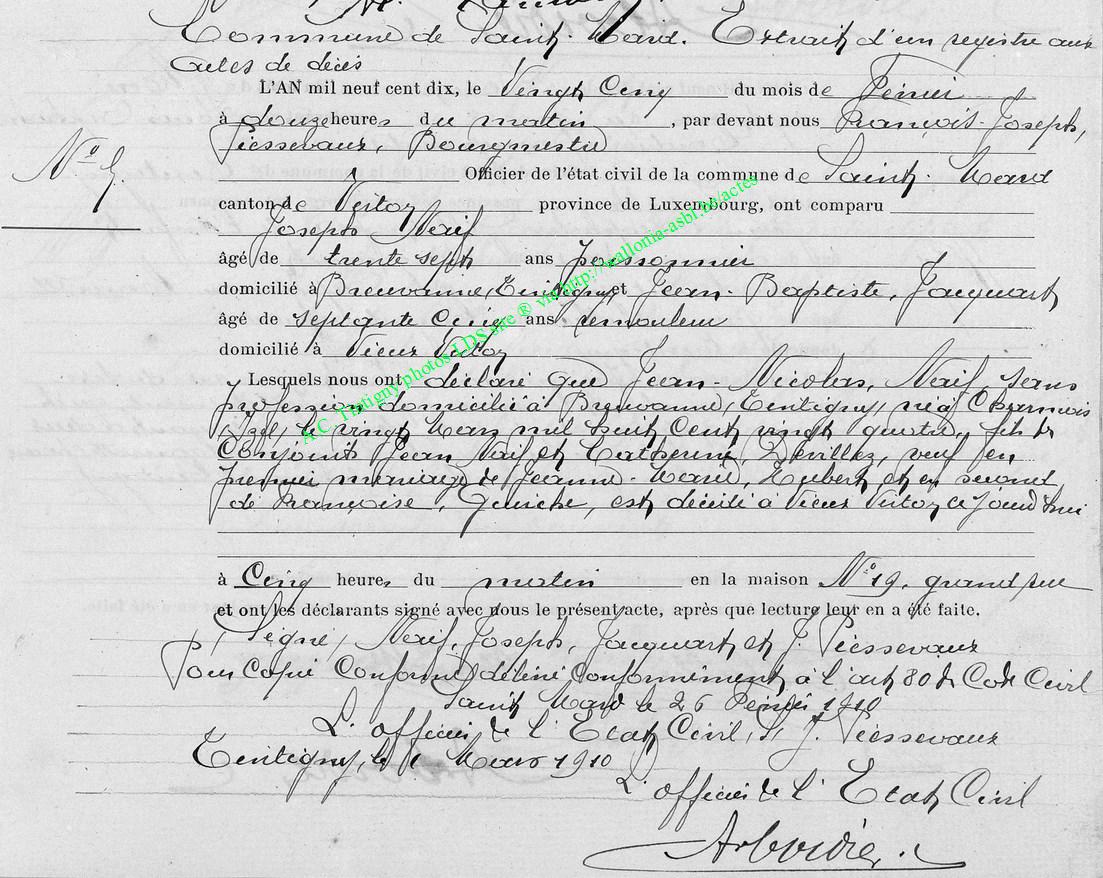 Commune de Saint-Mard. Extrait d'un registre aux
actes de décès
L'AN mil neuf cent dix, le Vingt Cinq du mois de Février
à douze heures du matin, par devant nous François-Joseph,
Piessevaux, Bourgmestre
N° 5.
Officier de l'état civil de la commune de Saint-Mard
canton de Virton province de Luxembourg, ont comparu
Joseph Naif
âgé de trente sept ans
domicilié à Breuvanne, Tintigny et Jean-Baptiste, Jacquart
âgé de septante cinq ans remouleur
domicilié à Vieux Virton
Lesquels nous ont déclaré que Jean-Nicolas, Naif, sans
profession domicilié à Breuvanne, Tintigny, né à
Izel, le vingt Mars mil huit cent vingt quatre, fils de
Conjoints Jean Naif et Catherine, Devillez, veuf en
premier mariage de Jeanne-Marie, Hubert et en second
de Françoise, est décédé à Vieux Virton ce jourd'hui
à Cinq heures du matin en la maison N° 19. grand rue
et ont les déclarants signé avec nous le présent acte, après que lecture leur en a été faite.
Signé, Naif, Joseph, Jacquart et J. Piessevaux
Pour copie Conforme délivré Conformément à l'art 80 du Code Civil
Saint Mard le 26 Février 1910
L'officier de l'Etat Civil, J. Piessevaux
Tintigny, le 1 Mars 1910
L'officier de l'Etat Civil
A.C. Tintigny photos LDS site ® via http://wallonia-asbl.be/actes